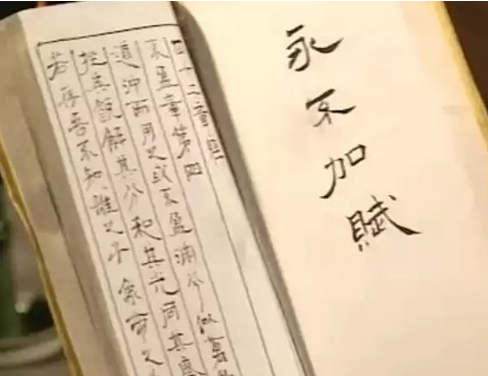 永不加賦
四十二章
不盈章第四
道沖而用之或不盈淵兮似萬
挫其銳解其分和其光同其塵
若存吾不知誰之子 象帝之